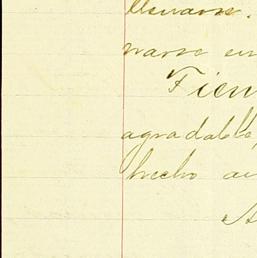 llenarse.
narse en
Tien
agradable,
hecho au
A